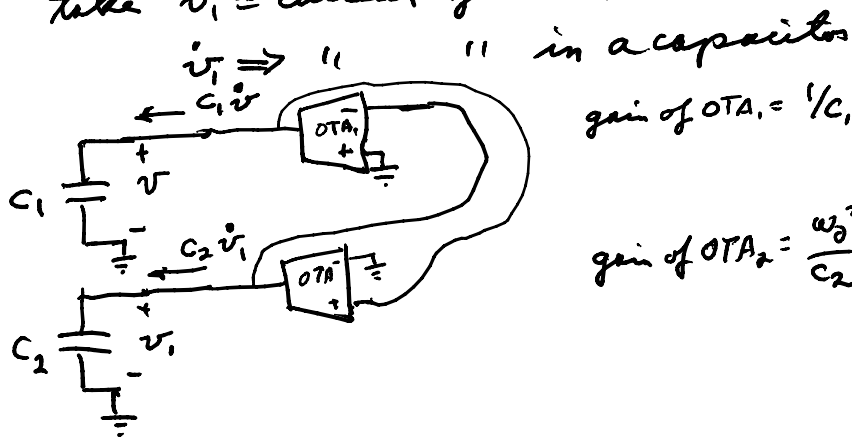 take v₁ = current
v̇₁ ⇒ " " in a capacitor
C₁v̇
OTA₁
−
+
gain of OTA₁ = 1/C₁
+
v
−
C₁
C₂v̇₁
OTA
−
+
gain of OTA₂ = ω₀²/C₂
+
v₁
−
C₂